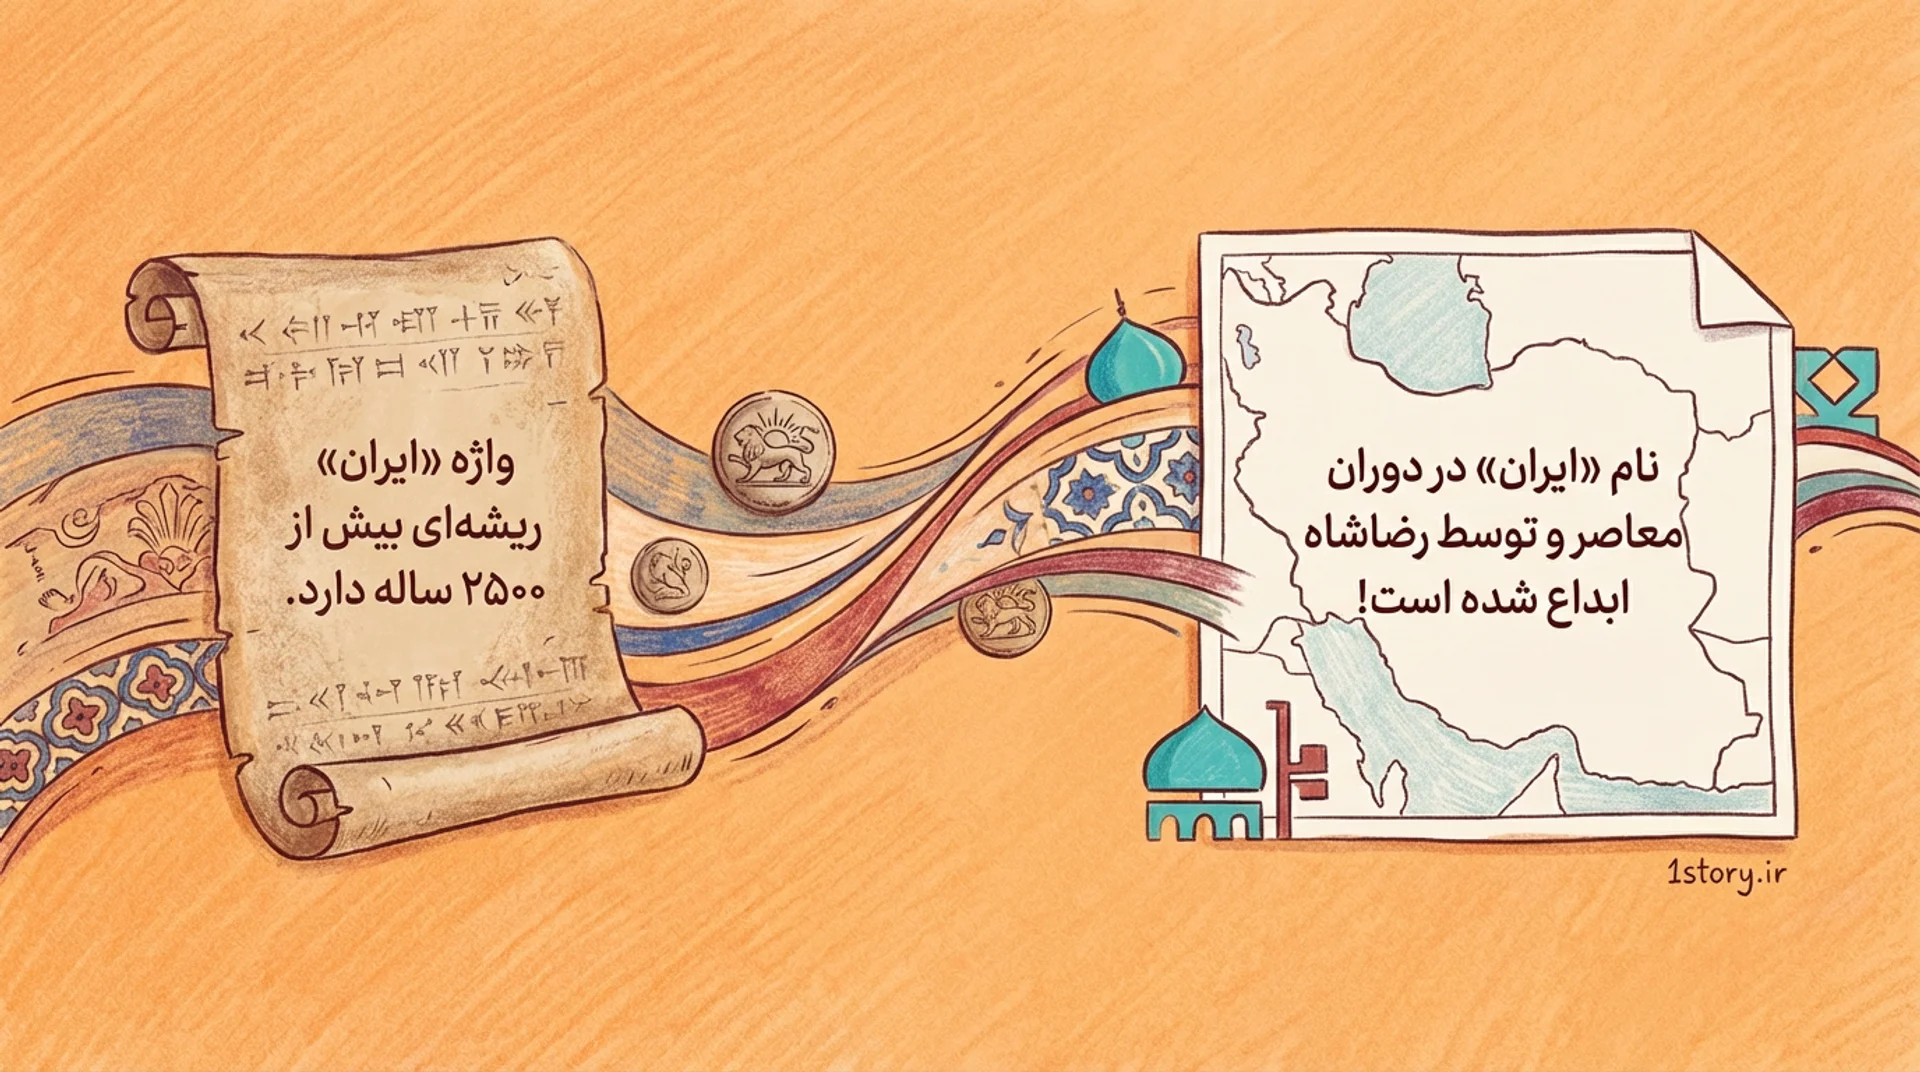 واژه «ایران»
ریشه‌ای بیش از
۲۵۰۰ ساله دارد.
نام «ایران» در دوران
معاصر و توسط رضاشاه
ابداع شده است!
1story.ir